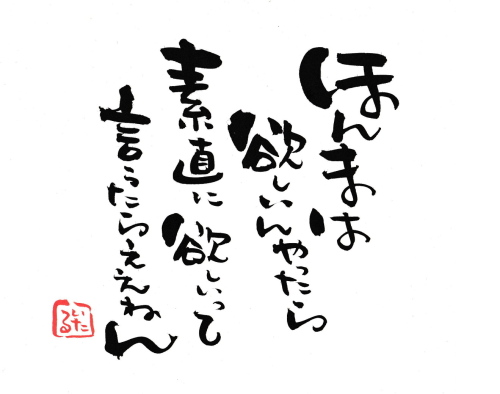 ほんまは
欲しいんやったら
素直に欲しいって
言うたらええねん
いたる